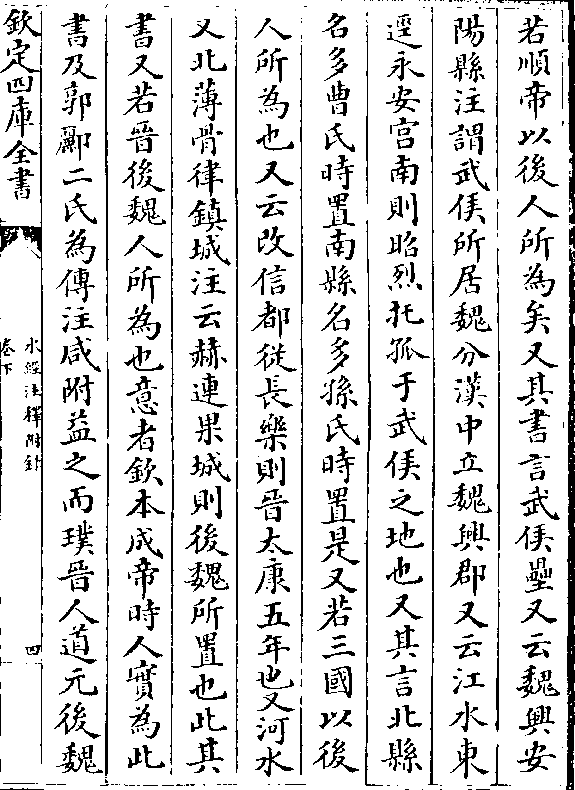 若順帝以後人所為矣又其書言武侯壘又云魏興安
陽縣注謂武侯所居魏分漢中立魏興郡又云江水東
逕永安宫南則昭烈托孤于武侯之地也又其言北縣
名多曹氏時置南縣名多孫氏時置是又若三國以後
人所為也又云改信都從長樂則晉太康五年也又河水
又北薄骨律鎮城注云赫連果城則後魏所置也此其
書又若晉後魏人所為也意者欽本成帝時人實為此
書及郭酈二氏為傳注咸附益之而璞晉人道元後魏
欽定四庫全書
水經注釋附錄
卷下
四